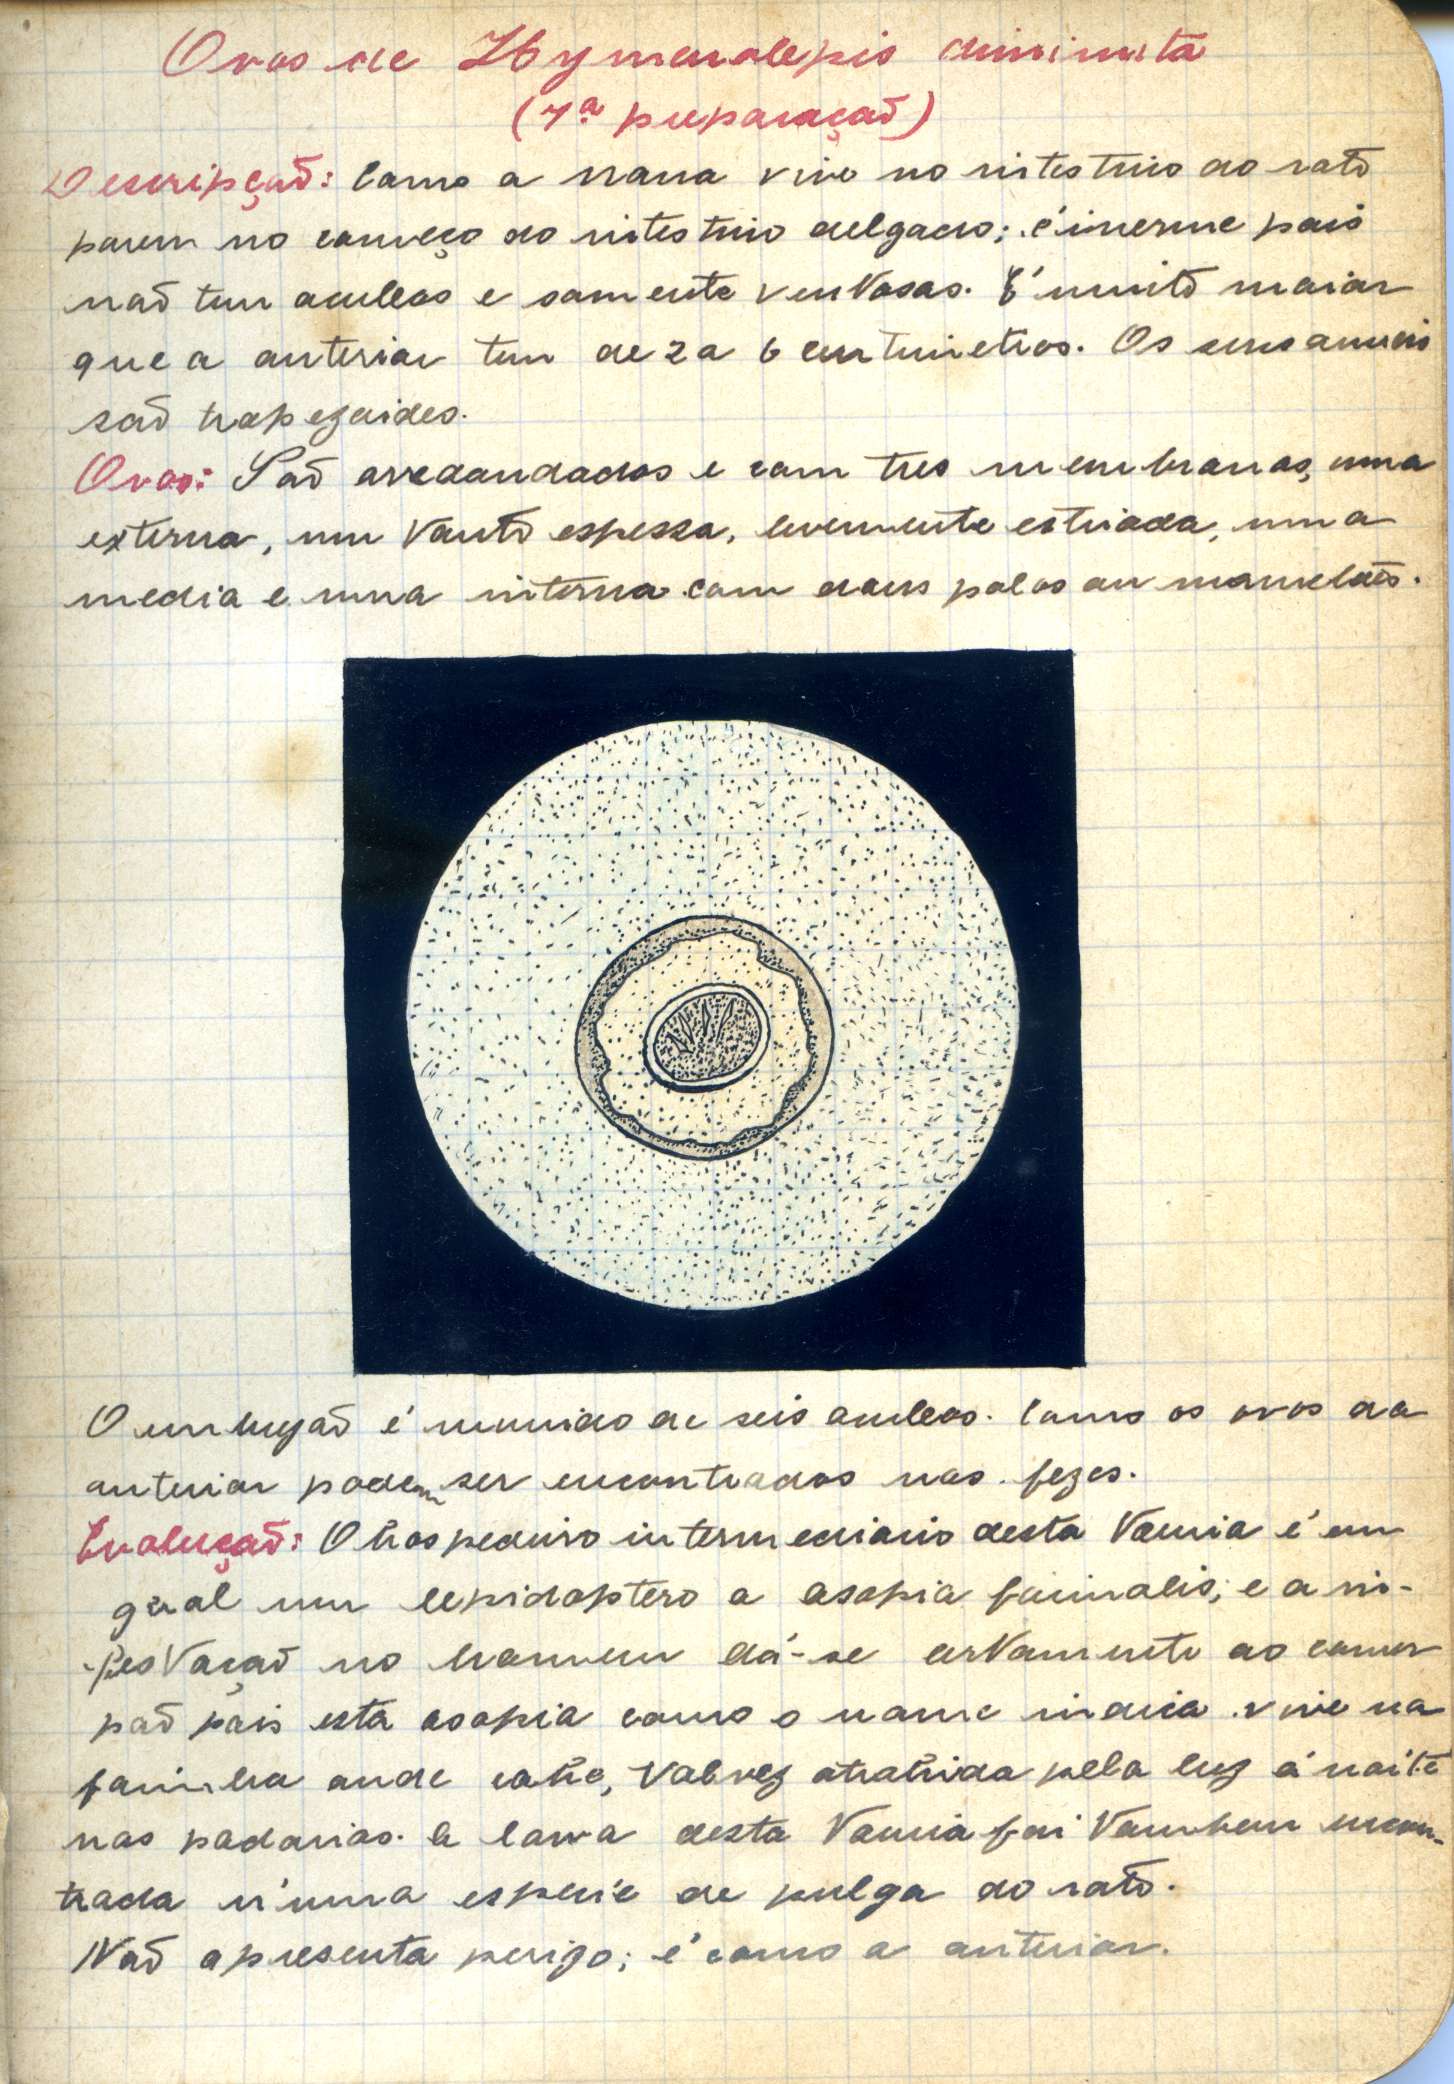 Ovos de Hymenolepis diminuta
(7ª preparação)
Descripção: Como a nana vive no intestino do rato
porem no começo do intestino delgado; é inerme pois
não tem aculeos e somente ventosas. É muito maior
que a anterior tem de 2 a 6 centimetros. Os seus anneis
são trapezoides.
Ovos: São arredondados e com tres membranas, uma
externa, um tanto espessa, levemente estriada, uma
media e uma interna com dous polos ou mamelões.
O embryão é munido de seis aculeos. Como os ovos da
anterior podem ser encontrados nas fezes.
Evolução: O hospedeiro intermediario desta tænia é em
geral um lepidoptero a asopia farinalis; e a in-
festação no homem dá-se certamente ao comer
pão pois esta asopia como o nome indica vive na
farinha onde cahe, talvez atrahida pela luz á noite
nas padarias. A larva desta tænia foi tambem encon-
trada n'uma especie de pulga do rato.
Não apresenta perigo; é como a anterior.